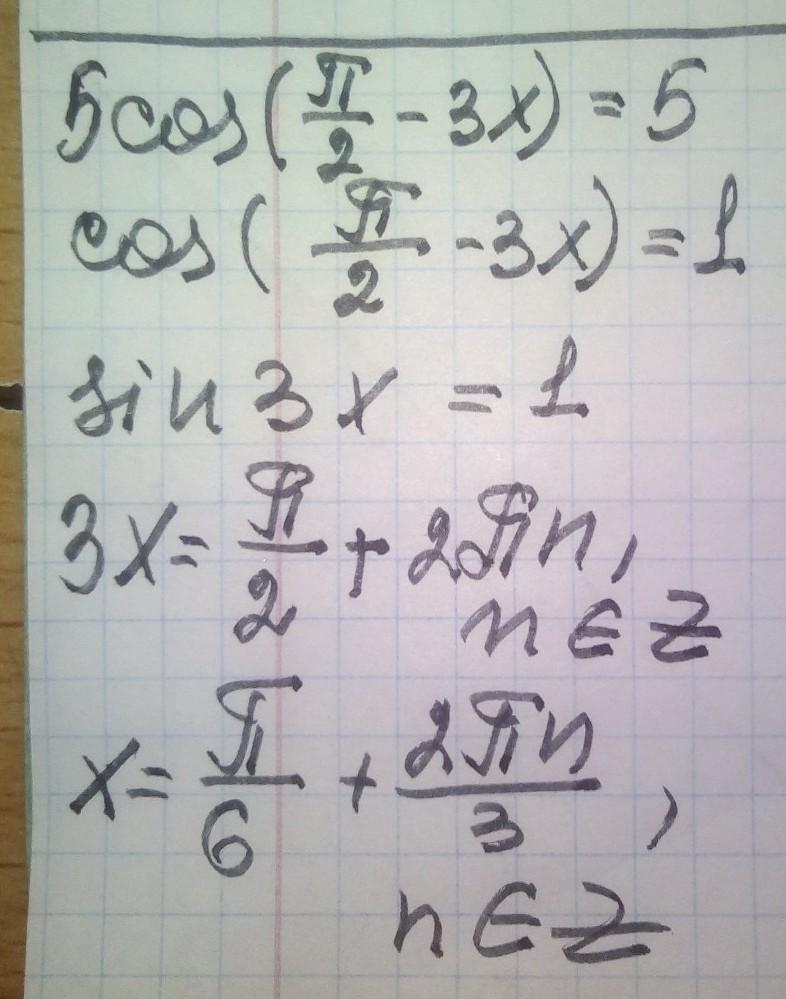 5cos(π/2 - 3x) = 5
cos(π/2 - 3x) = 1
sin 3x = 1
3x = π/2 + 2πn,
n ∈ Z
x = π/6 + 2πn/3,
n ∈ Z